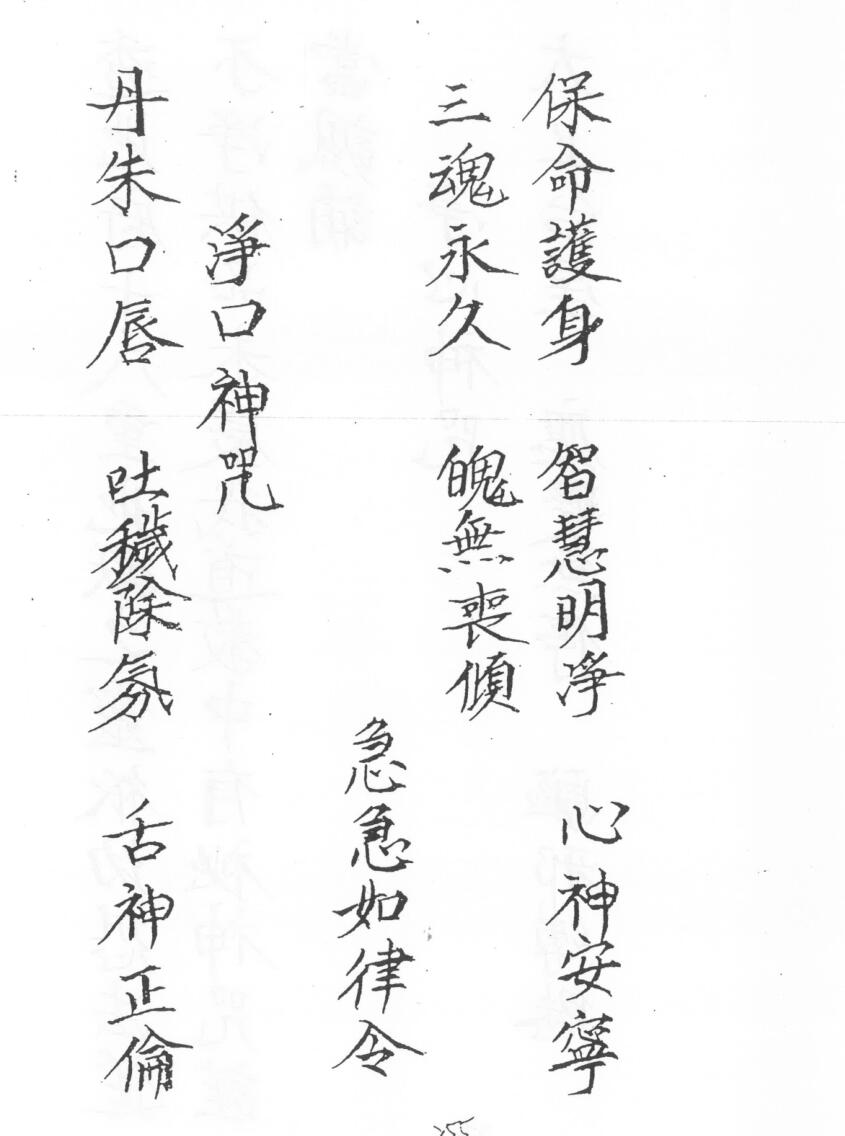 保命護身 智慧明淨 心神安寧
三魂永久 魄無喪傾
急急如律令
淨口神咒
丹朱口唇 吐穢除氛 舌神正倫
255